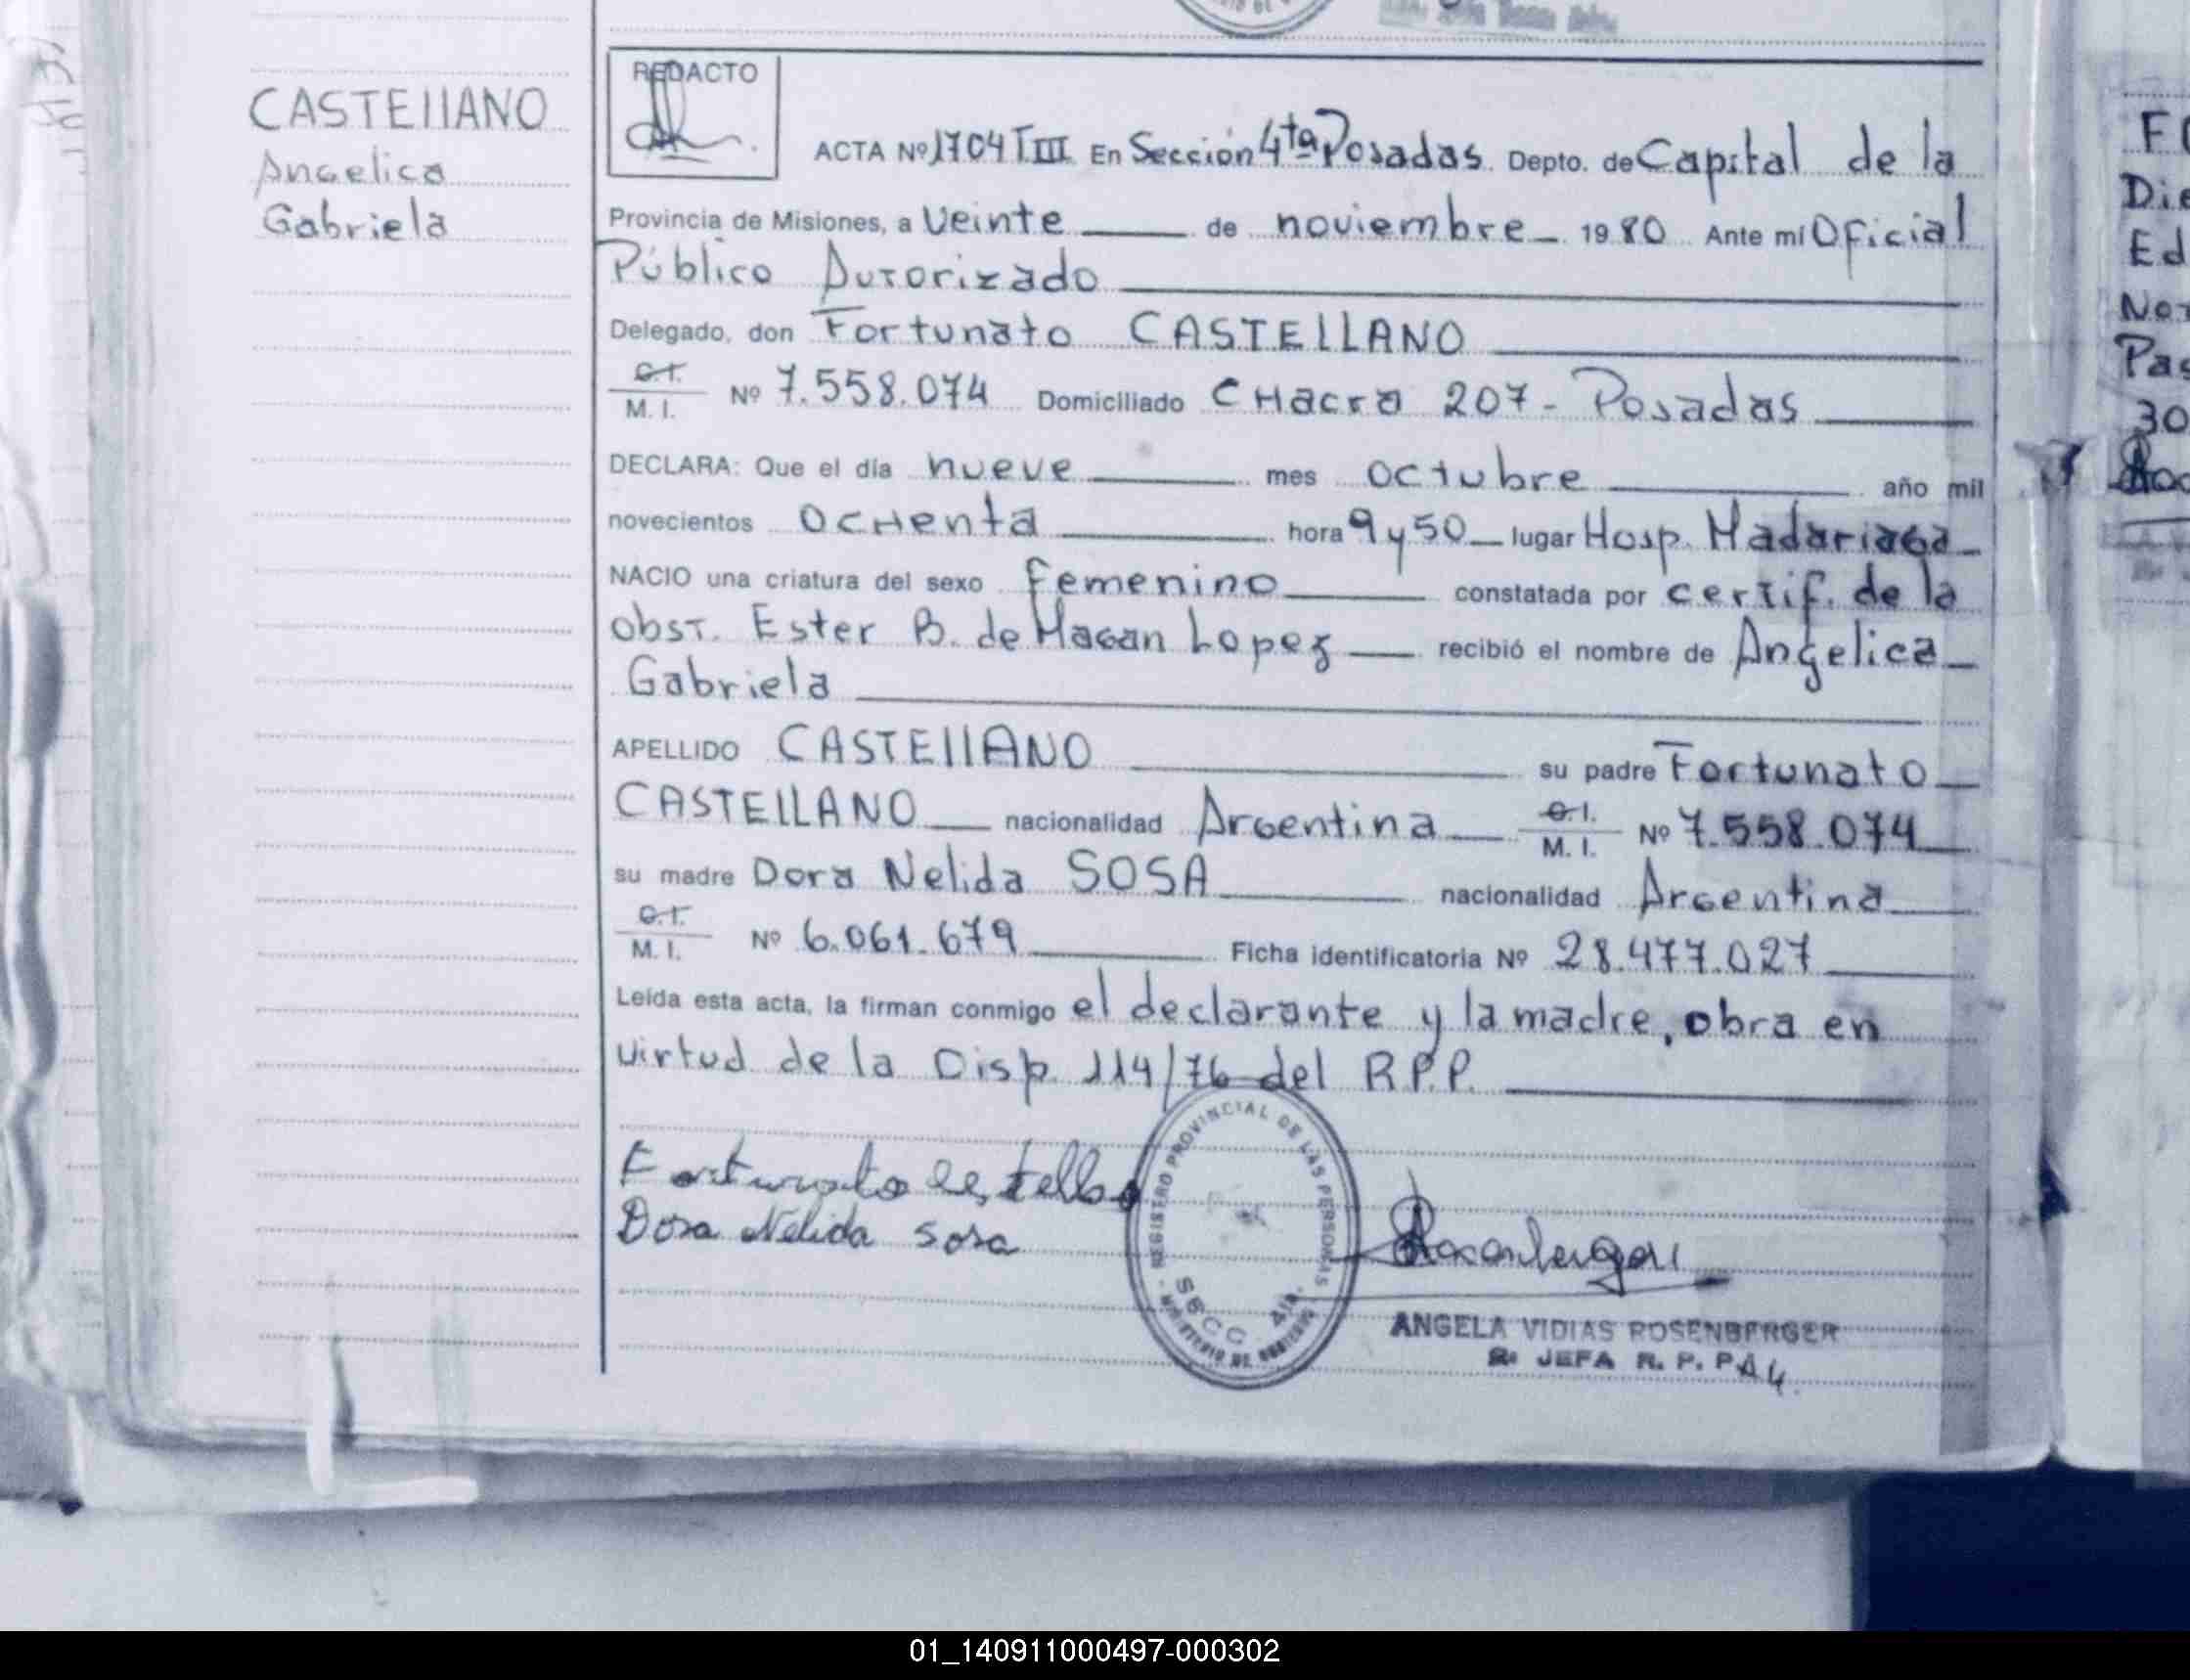 CASTELLANO
Angelica
Gabriela
REDACTO
ACTA Nº 1704 T III En Sección 4ta Posadas. Depto. de Capital de la
Provincia de Misiones, a veinte de noviembre 1980 Ante mí Oficial
Público Autorizado
Delegado, don Fortunato CASTELLANO
C.I. M. I. Nº 7.558.074 Domiciliado CHacra 207 - Posadas
DECLARA: Que el día nueve mes octubre año mil
novecientos OCHenta hora 9 y 50 lugar Hosp. Madariaga
NACIO una criatura del sexo femenino constatada por certif. de la
obst. Ester B. de Magan Lopez recibió el nombre de Angelica
Gabriela
APELLIDO CASTELLANO su padre Fortunato
CASTELLANO nacionalidad Argentina C.I. M. I. Nº 7.558.074
su madre Dora Nelida SOSA nacionalidad Argentina
C.I. M. I. Nº 6.061.679 Ficha identificatoria Nº 28.477.027
Leída esta acta, la firman conmigo el declarante y la madre, obra en
virtud de la Disp. 114/76 del R.P.P.
Fortunato Castellano
Dora Nelida Sosa
REGISTRO PROVINCIAL DE LAS PERSONAS
SECC 4ta.
MINISTERIO DE GOBIERNO
ANGELA VIDIAS ROSENBERGER
2a JEFA R. P. P. A 4
Die
Ed
Pas
30
01_140911000497-000302